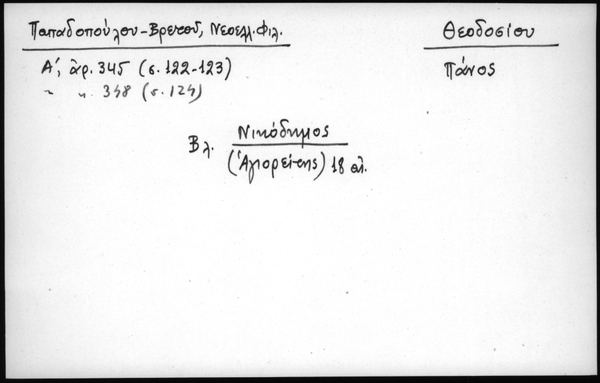 Παπαδοπούλου-Βρετοῦ, Νεοελλ. Φιλ.
Θεοδοσίου
Α΄, ἀρ. 345 (σ. 122-123)
Πάνος
" " 348 (σ. 124)
Βλ. Νικόδημος
(Ἁγιορείτης) 18 αἰ.